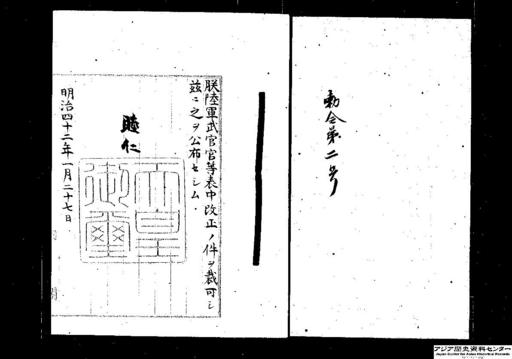 勅令第二号
朕陸軍武官官等表中改正ノ件ヲ裁可シ
茲ニ之ヲ公布セシム
睦仁
天皇
御璽
明治四十二年一月二十七日
アジア歴史資料センター
Japan Center for Asian Historical Records